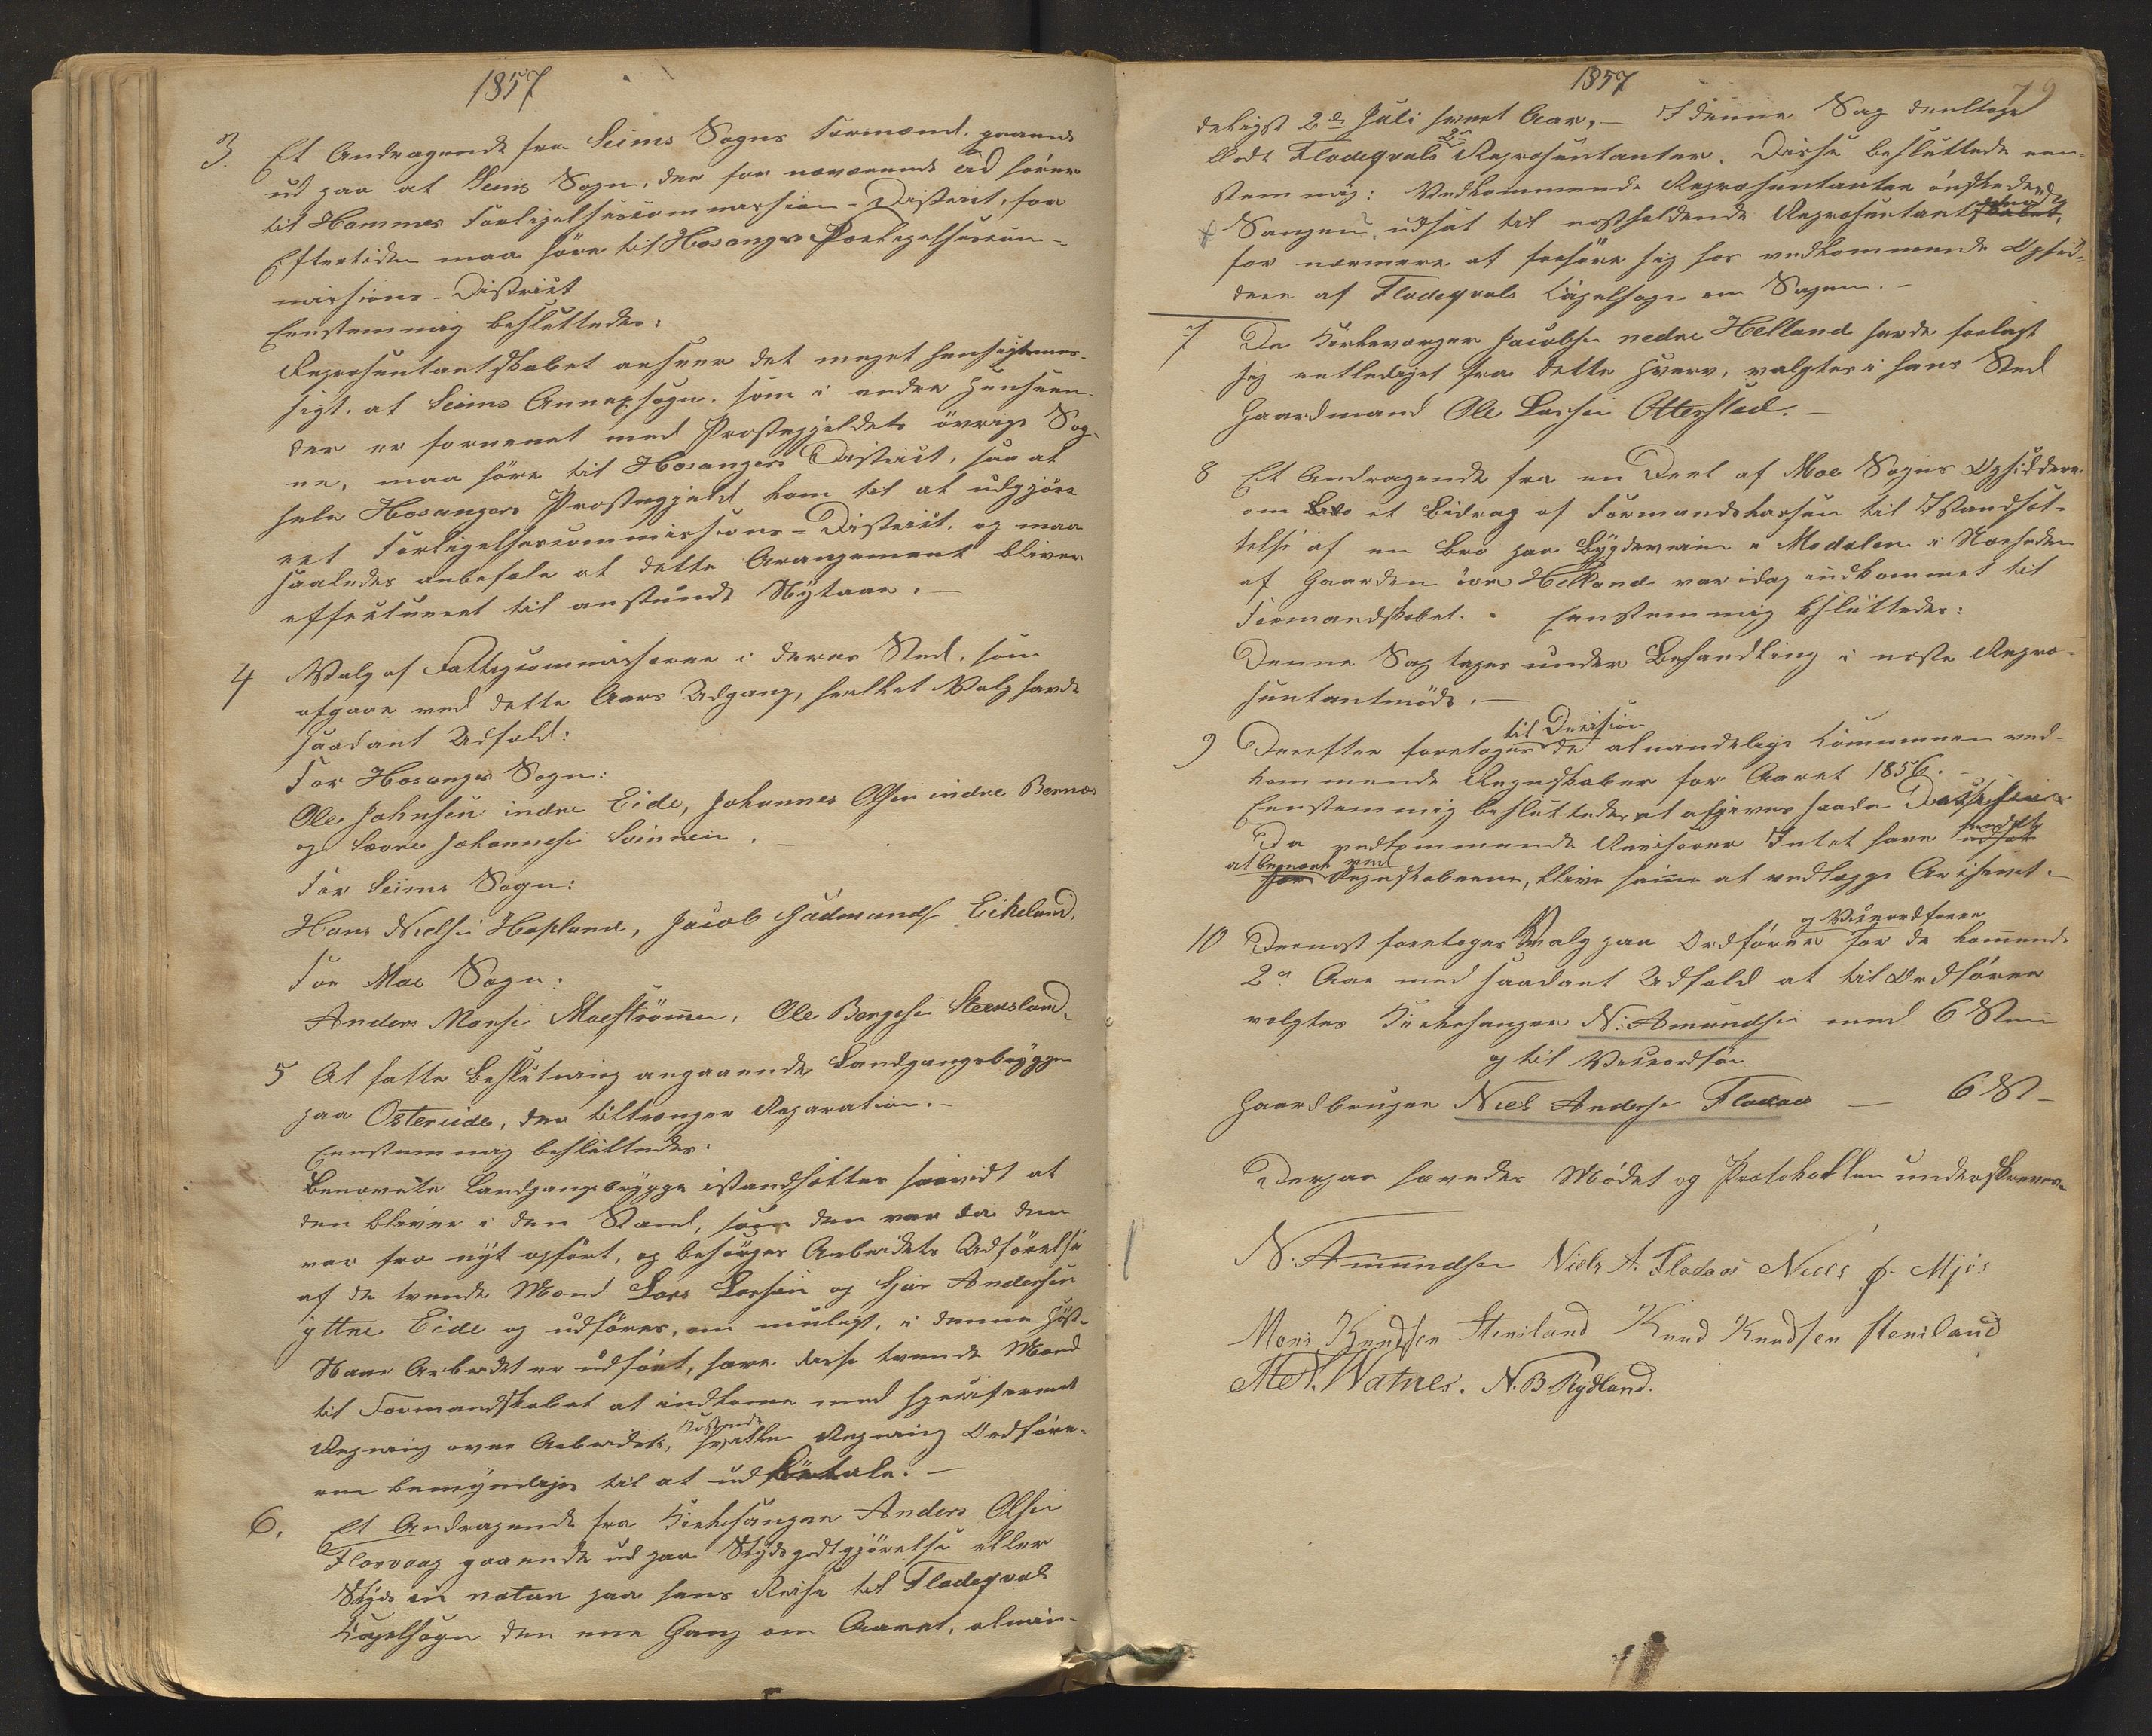 1857
3. Et Andragende fra Seims Sogns Formænd, gaaende
ud paa at Seims Sogn, der for nærværende Tid hører
til Hammer Forligelsescommissions-District, for
Eftertiden maa høre til Hosangers Forligelsescom-
missions-District
Eenstemmig besluttedes:
Repræsentantskabet anseer det meget hensigtsmæs-
sigt, at Seims Annexsogn, som i andre Henseen-
der er forenet med Præstegjeldets øvrige Sog-
ne, maa høre til Hosangers District, saa at
hele Hosangers Præstegjeld kom til at udgjøre
eet Forligelsescommissions-District, og maa
saaledes anbefale at dette Arangement bliver
effectueret til anstundende Nytaar. —
4 Valg af Fattigcommissærer i deres Sted, som
afgaae ved dette Aars Udgang, hvilket Valg havde
saadant Udfald:
For Hosanger Sogn:
Ole Johnsen indre Eide, Johannes Olsen indre Bernæs
og Sævre Johannesen Soinnen. —
For Seims Sogn:
Hans Nielsen Hopland, Jacob Gudmunds. Eikeland.
For Moe Sogn:
Anders Monsen Moestrømmen, Ole Bergesen Steensland.
5 At fatte Beslutning angaaende Landgangsbryggen
paa Ostereide, der tiltrænger Reparation. —
Eenstemmig besluttedes:
Benævnte Landgangsbrygge istandsættes saavidt at
den bliver i den Stand, som den var da den
var fra nyt opført, og besørges Arbeidets Udførelse
af de tvende Mænd Lars Larsen og Sjur Andersen
yttre Eide og udføres, om muligt, i denne Høst.
Naar Arbeidet er udført, have disse tvende Mænd
til Formandskabet at indkomme med specificeret
Regning over Arbeidets Kostende, hvilken Regning Ordføre-
ren bemyndiges til at udbetale. —
6. Et Andragende fra Kirkesanger Anders Olsen
Florvaag gaaende ud paa Skydsgodtgjørelse eller
Skyds in natura paa hans Reise til Fladeqvals
Capelsogn den ene Gang om Aaret, almin-
1857
79
deligst 2den Juli hvert Aar. — I denne Sag deeltoge
blodt Fladeqvals 2de Repræsentanter. Disse besluttede een-
stemmig: Vedkommende Repræsentanter ønskede
Sangen udsat til næstholdende Repræsentantmøde,
for nærmere at forhøre sig hos vedkommende Opsid-
dere af Fladeqvals Capelsogn om Sagen. —
7 Da Kirkeværger Jacobsen nedre Helland havde forlagt
sig entlediget fra dette Hverv, valgtes i hans Sted
Gaardmand Ole Larsen Otterstad. —
8 Et Andragende fra en Deel af Moe Sogns Opsiddere
om et Bidrag af Formandskassen til Istandsæt-
telse af en Bro paa Bygdeveien i Modalen i Nærheden
af Gaarden øvre Helland var idag indkommet til
Formandskabet. — Eenstemmig besluttedes:
Denne Sag tages under Behandling i næste Repræ-
sentantmøde. —
9 Derefter foretoges til Decision de almindelige Kommunen ved-
kommende Regnskaber for Aaret 1856.
Eenstemmig besluttedes at afgives saadan Decision
Da vedkommende Revisorer Intet have fundet
at bemærke ved Regnskaberne, blive samme at vedlægge Archivet. —
10 Dernæst foretoges Valg paa Ordfører og Viceordfører for de kommende
2de Aar med saadant Udfald at til Ordfører
valgtes Kirkesanger N. Amundsen med 6 Stem
og til Viceordfør
Gaardbruger Niels Andersen Fladaas — 6 St —
Derpaa hævedes Mødet og Protokollen underskreves.
N. Amundsen Niels A. Fladaas Niels J. Mjøs
Mons Knudsen Stensland Knud Knudsen Stensland
M. N. Watnes. N. B. Rydland.